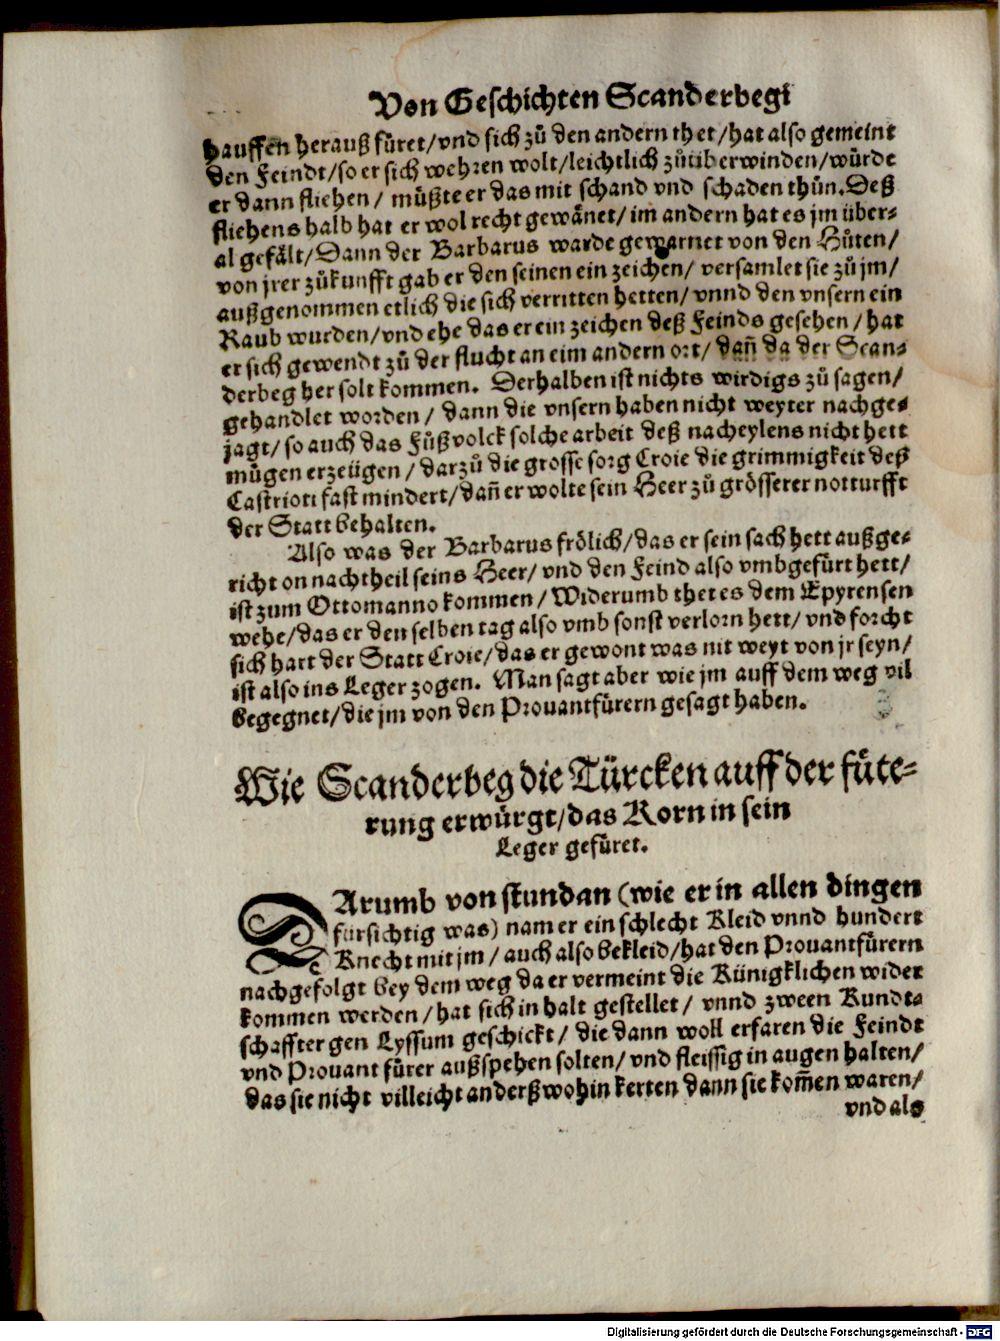 Von Geschichten Scanderbegi
hauffen herauß füret/vnd sich zů den andern thet/hat also gemeint
den Feindt/so er sich wehren wolt/leichtlich zůüberwinden/würde
er dann fliehen/ müßte er das mit schand vnd schaden thůn. Deß
fliehens halb hat er wol recht gewänet/ im andern hat es jm über-
al gefält/Dann der Barbarus warde gewarnet von den Hůten/
von jrer zůkunfft gab er den seinen ein zeichen/ versamlet sie zů jm/
außgenommen etlich die sich verritten hetten/ vnnd den vnsern ein
Raub wurden/vnd ehe das er ein zeichen deß Feinds gesehen/hat
er sich gewendt zů der flucht an eim andern ort/ dañ da der Scan-
derbeg her solt kommen. Derhalben ist nichts wirdigs zů sagen/
gehandlet worden/ dann die vnsern haben nicht weyter nachge-
jagt/ so auch das Fůßvolck solche arbeit deß nacheylens nicht hett
mügen erzeügen/darzů die grosse sorg Croie die grimmigkeit deß
Castrioti fast mindert/dañ er wolte sein Heer zů grösserer notturfft
der Statt behalten.
Also was der Barbarus frölich/das er sein sach hett außge-
richt on nachtheil seins Heer/ vnd den Feind also vmbgefürt hett/
ist zum Ottomanno kommen/Widerumb thet es dem Epyrensen
wehe/das er den selben tag also vmb sonst verlorn hett/ vnd forcht
sich hart der Statt Croie/das er gewont was nit weyt von jr seyn/
ist also ins Leger zogen. Man sagt aber wie jm auff dem weg vil
begegnet/die jm von den Prouantfürern gesagt haben.
Wie Scanderbeg die Türcken auff der füte-
rung erwürgt/das Korn in sein
Leger gefüret.
DArumb von stundan (wie er in allen dingen
fürsichtig was) nam er ein schlecht Kleid vnnd hundert
Knecht mit jm/ auch also bekleid/hat den Prouantfürern
nachgefolgt bey dem weg da er vermeint die Künigklichen wider
kommen werden/hat sich in halt gestellet/ vnnd zween Kundt-
schaffter gen Lyssum geschickt/ die dann woll erfaren die Feindt
vnd Prouant fürer außspehen solten/ vnd fleissig in augen halten/
das sie nicht villeicht anderßwohin kerten dann sie kom̃en waren/
vnd als
Digitalisierung gefördert durch die Deutsche Forschungsgemeinschaft - DFG